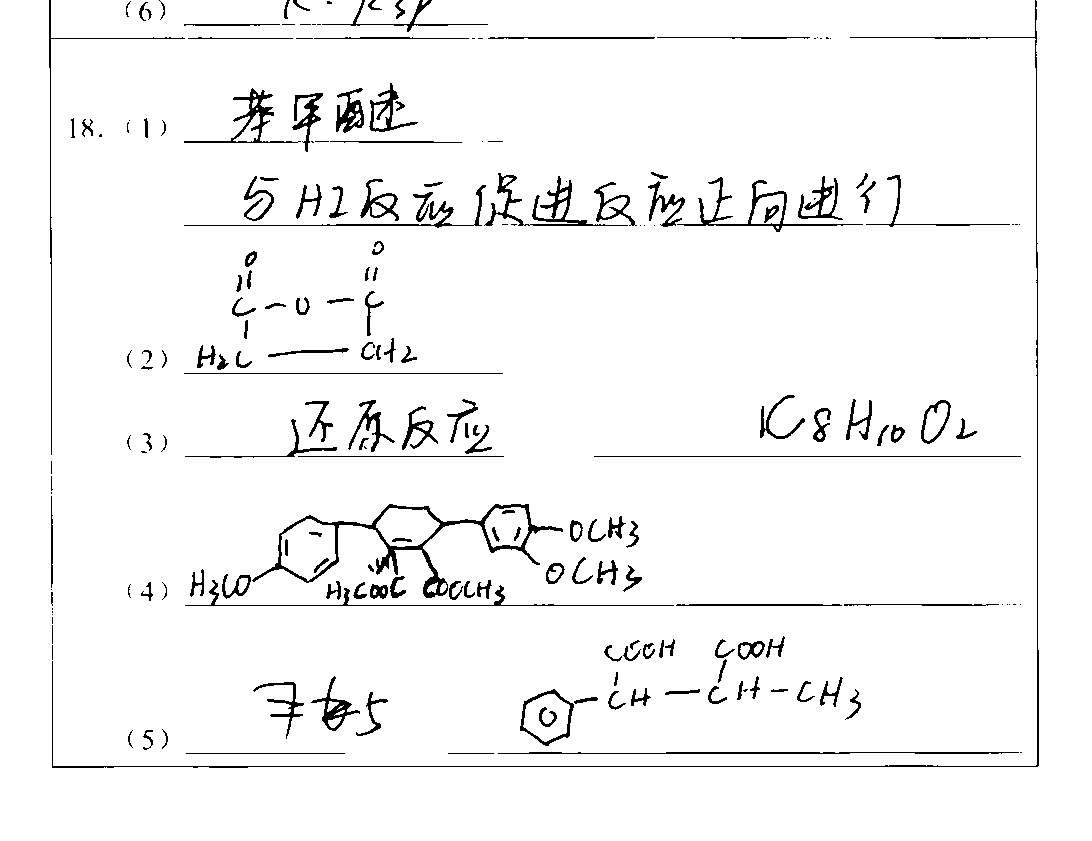 (6)
18. (1) 苯甲醚
与HI反应促进反应正向进行
O O
C - O - C
(2) H2C CH2
(3) 还原反应 C8H10O2
OCH3
OCH3
(4) H3CO H3COOC COOCH3
COOH COOH
CH - CH - CH3
(5) 5